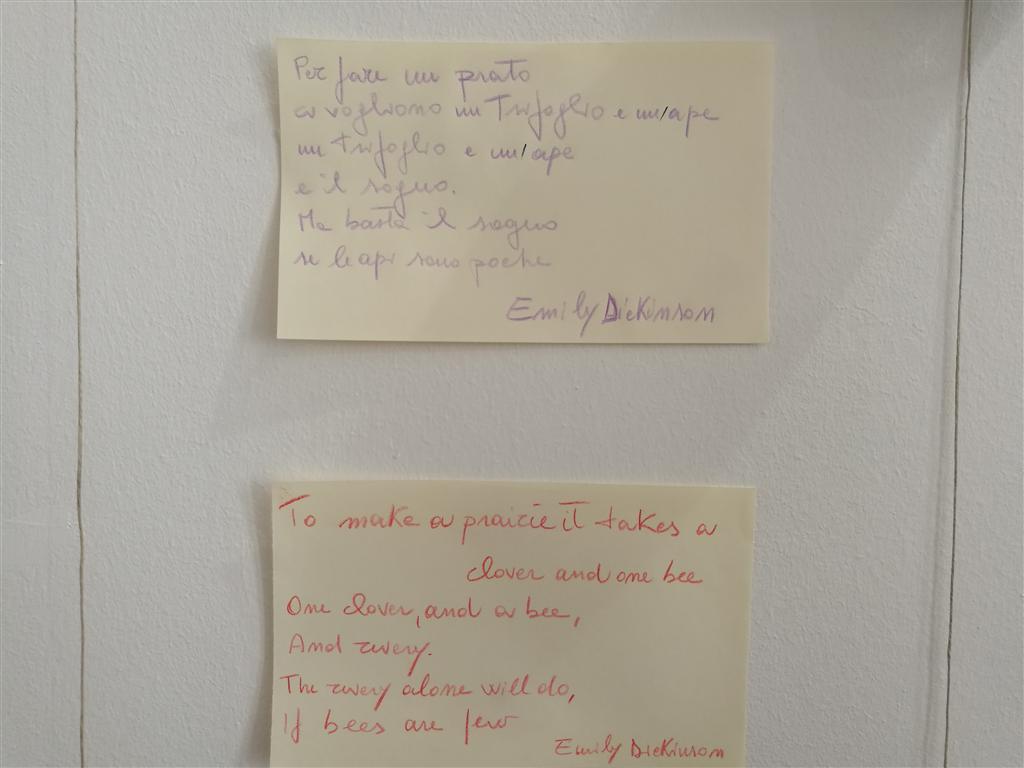 Per fare un prato
ci vogliono un Trifoglio e un'ape
un Trifoglio e un'ape
e il sogno.
Ma basta il sogno
se le api sono poche
Emily Dickinson
To make a prairie it takes a
clover and one bee
One clover, and a bee,
And revery.
The revery alone will do,
If bees are few
Emily Dickinson